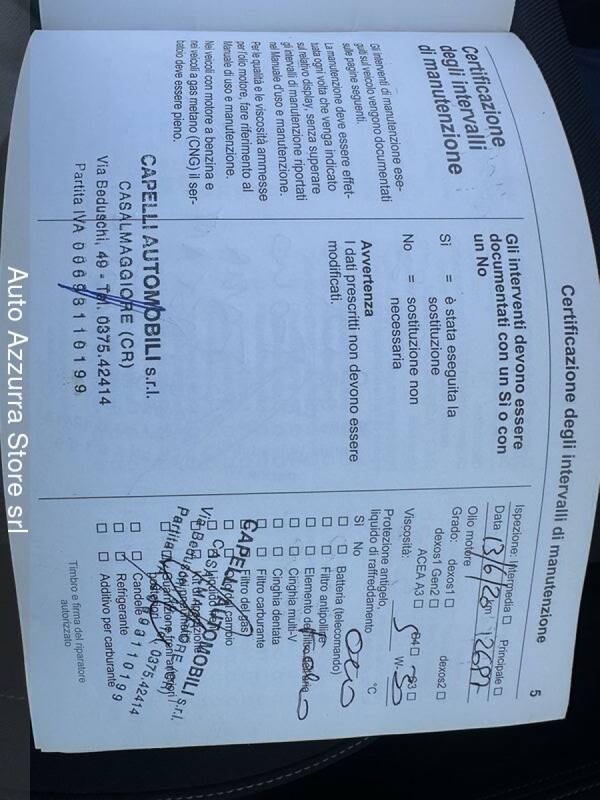 Certificazione degli intervalli di manutenzione
5
Certificazione
degli intervalli
di manutenzione
Gli interventi di manutenzione ese-
guiti sul veicolo vengono documentati
sulle pagine seguenti.
La manutenzione deve essere effet-
tuata ogni volta che venga indicato
sul relativo display, senza superare
gli intervalli di manutenzione riportati
nel Manuale d'uso e manutenzione.
Per le qualità e le viscosità ammesse
per l'olio motore, fare riferimento al
Manuale di uso e manutenzione.
Nei veicoli con motore a benzina e
nei veicoli a gas metano (CNG) il ser-
batoio deve essere pieno.
Gli interventi devono essere
documentati con un Sì o con
un No
Sì = è stata eseguita la
sostituzione
No = sostituzione non
necessaria
Avvertenza
I dati prescritti non devono essere
modificati.
CAPELLI AUTOMOBILI s.r.l.
CASALMAGGIORE (CR)
Via Beduschi, 49 - Tel. 0375.42414
Partita IVA 00698110199
Ispezione: Intermedia ☐ Principale ☐
Data 13/6/20 km
Olio motore
Grado: dexos1 ☐ dexos2 ☐
dexos1 Gen2 ☐
ACEA A3 ☐
Viscosità: 5 W- 30
Protezione antigelo,
liquido di raffreddamento °C
Sì No
☐ ☐ Batteria (telecomando)
☐ ☐ Filtro antipolline
☐ ☐ Elemento del filtro dell'aria
☐ ☐ Cinghia multi-V
☐ ☐ Cinghia dentata
☐ ☐ Filtro carburante
☐ ☐ Filtro del gas
☐ ☐ Candele
☐ ☐ Refrigerante
☐ ☐ Additivo per carburante
CAPELLI AUTOMOBILI s.r.l.
Timbro e firma del riparatore
autorizzato
Auto Azzurra Store srl